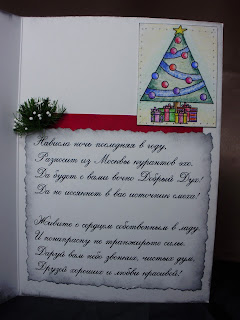 Нависла ночь последняя в году,
Разносит из Москвы курантов эхо.
Да будет с вами вечно Добрый Дух!
Да не иссякнет в вас источник смеха!
Живите с сердцем собственным в ладу
И понапрасну не транжирьте силы.
Даруй вам небо звонких, чистых дум,
Друзей хороших и любви красивой!